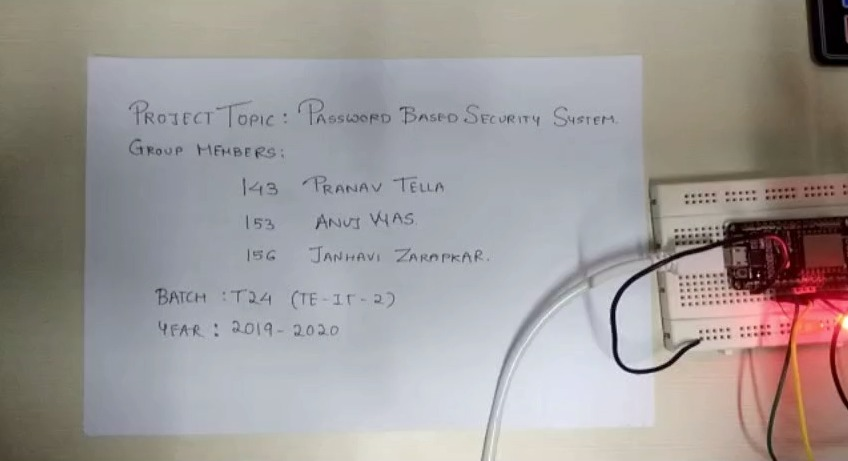 PROJECT TOPIC: PASSWORD BASED SECURITY SYSTEM.
GROUP MEMBERS:
143 PRANAV TELLA
153 ANUJ VYAS
156 JANHAVI ZARAPKAR.
BATCH : T24 (TE-IT-2)
YEAR : 2019-2020